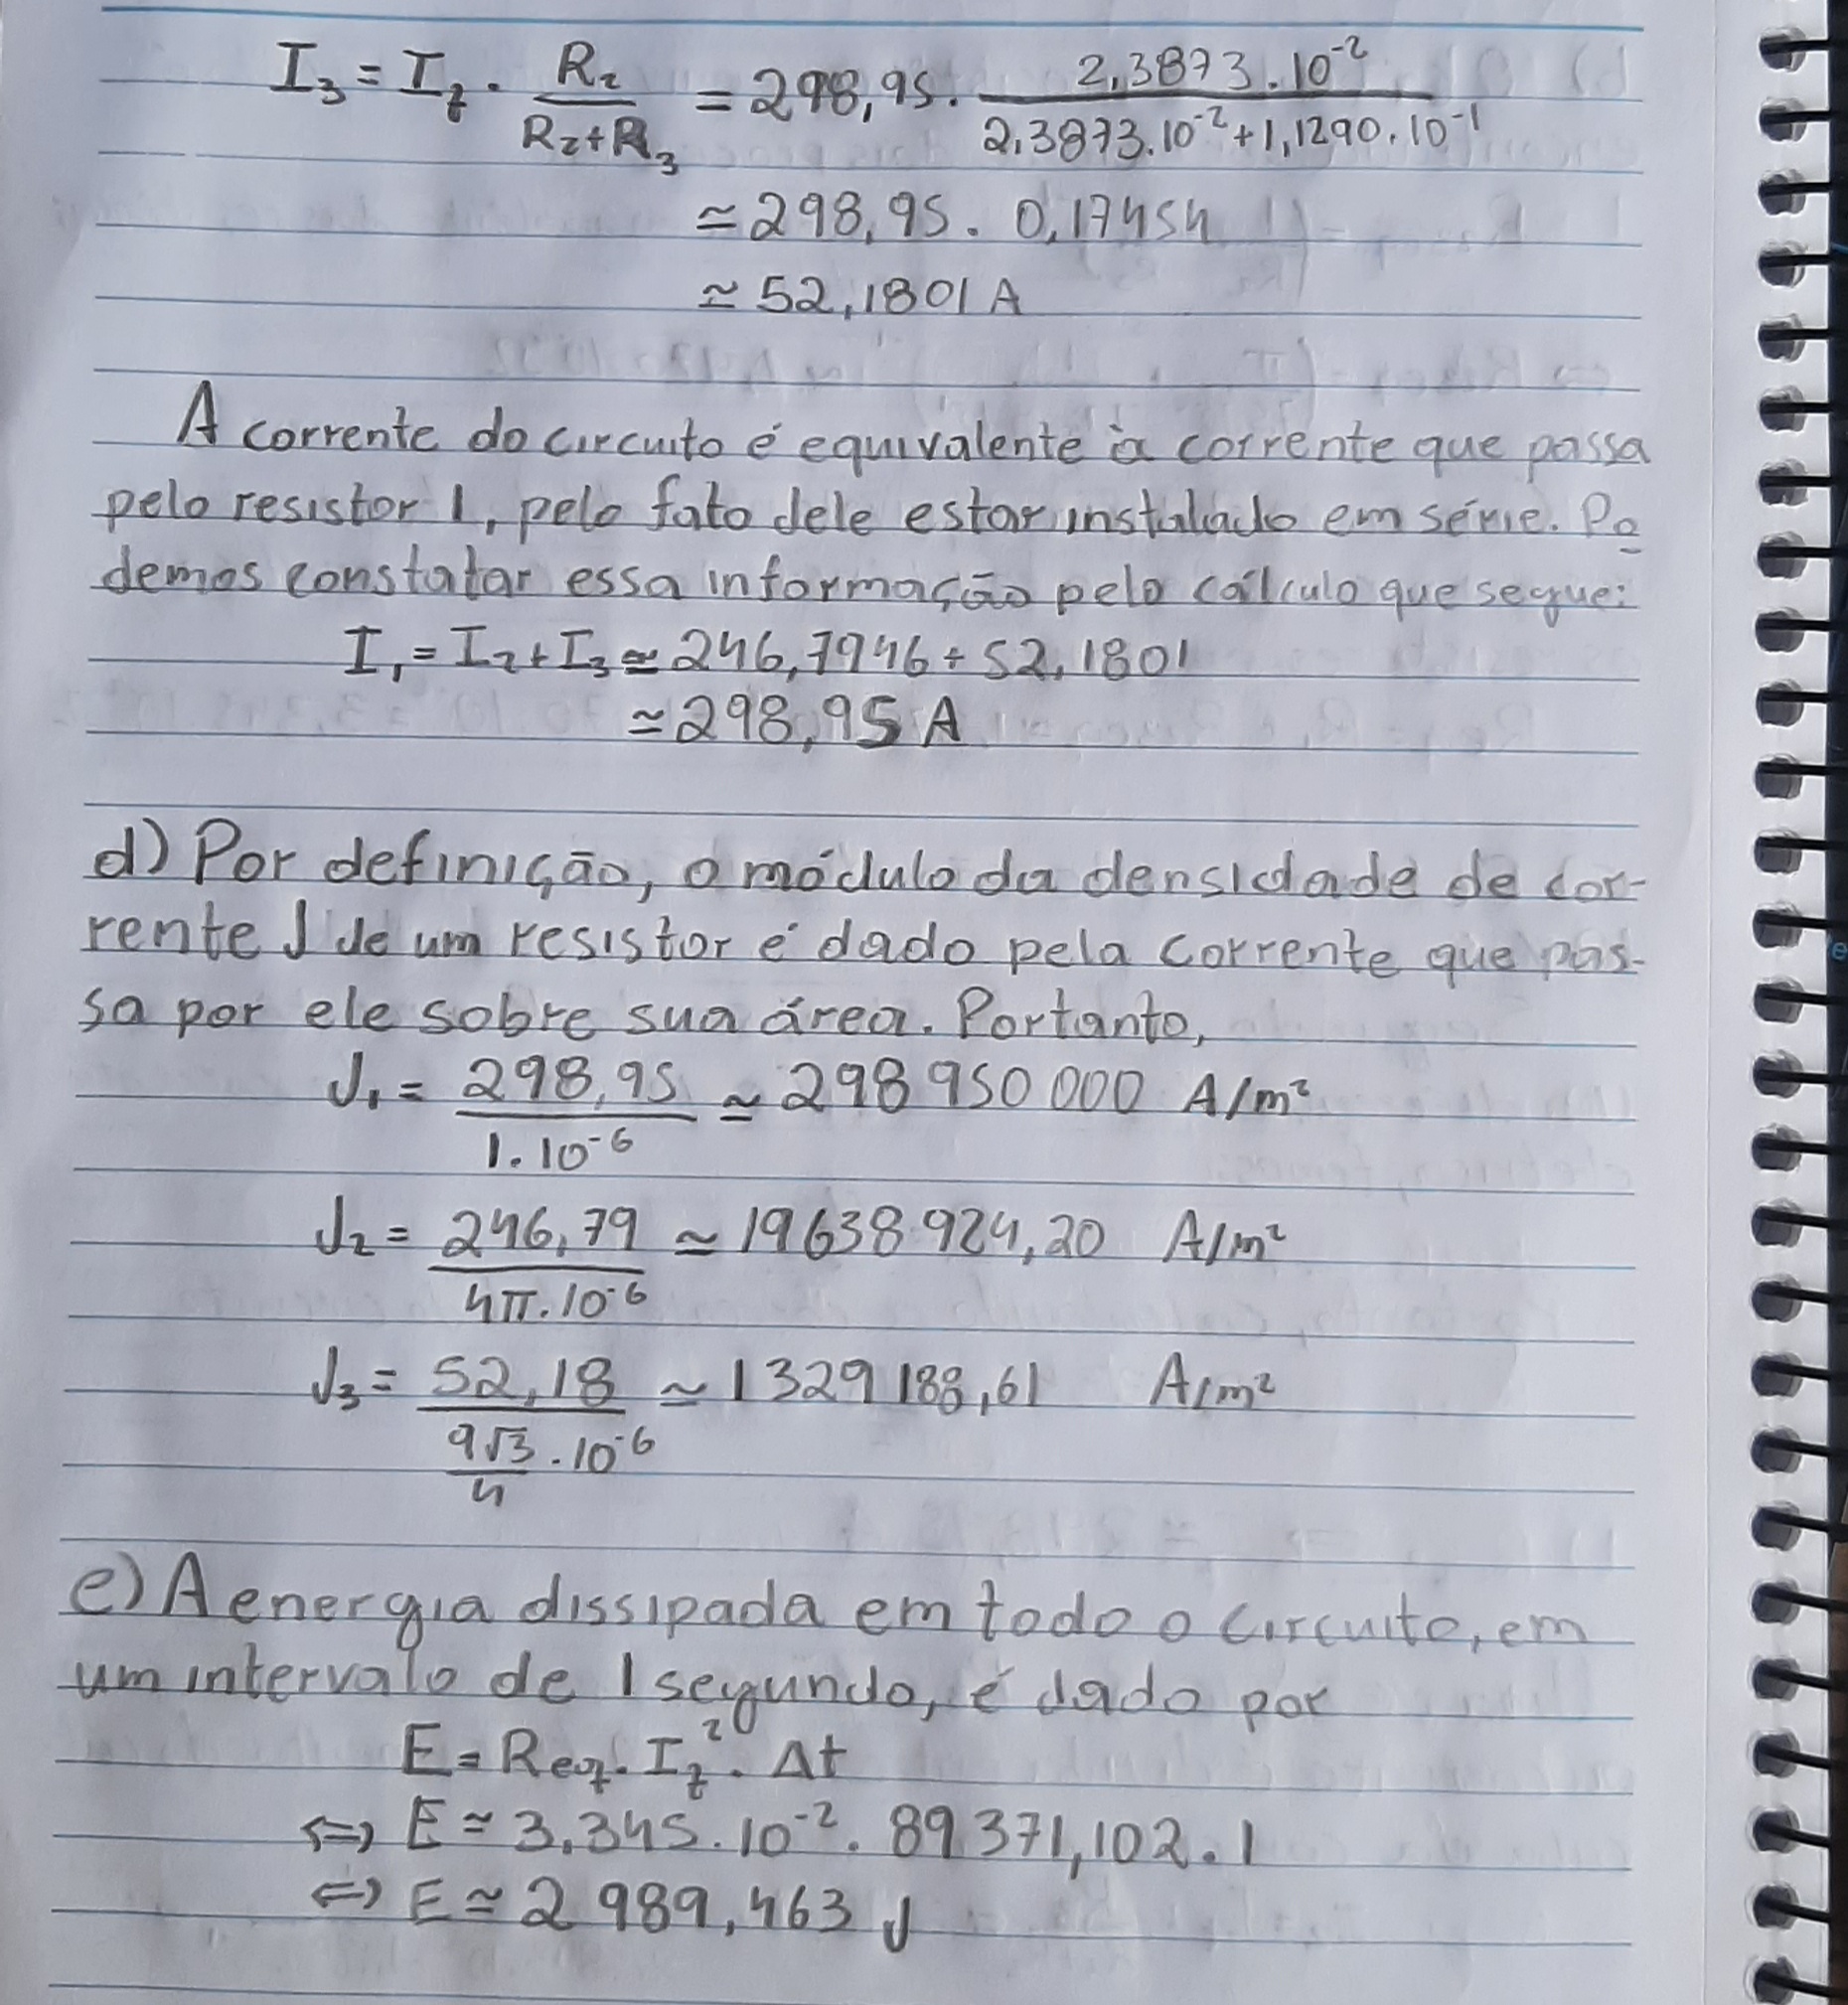 I₃ = I_t · R₂/(R₂+R₃) = 298,95 · 2,3873·10⁻²/(2,3873·10⁻² + 1,1290·10⁻¹)
≃ 298,95 · 0,17454
≃ 52,1801 A
A corrente do circuito é equivalente à corrente que passa
pelo resistor 1, pelo fato dele estar instalado em série. Po
demos constatar essa informação pelo cálculo que segue:
I₁ = I₂ + I₃ ≃ 246,7946 + 52,1801
≃ 298,95 A
d) Por definição, o módulo da densidade de cor-
rente J de um resistor é dado pela corrente que pas-
sa por ele sobre sua área. Portanto,
J₁ = 298,95/(1·10⁻⁶) ≃ 298 950 000 A/m²
J₂ = 246,79/(4π·10⁻⁶) ≃ 19 638 924,20 A/m²
J₃ = 52,18/(9√3/4 · 10⁻⁶) ≃ 1 329 188,61 A/m²
e) A energia dissipada em todo o circuito, em
um intervalo de 1 segundo, é dado por
E = Req · I_t² · Δt
⇔ E ≃ 3,345·10⁻² · 89 371,102 · 1
⇔ E ≃ 2 989,463 J